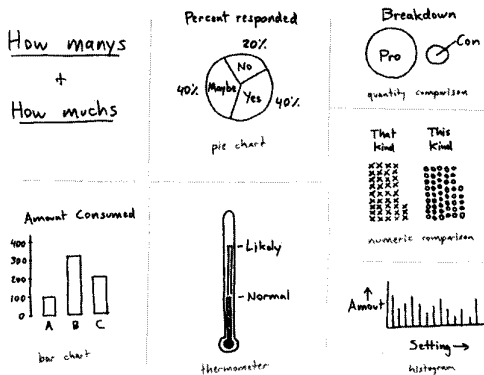 How manys
+
How muchs
Percent responded
20%
No
40%
Maybe
Yes
40%
pie chart
Breakdown
Pro
Con
quantity comparison
That kind
This kind
numeric comparison
Amount Consumed
400
300
200
100
0
A B C
bar chart
Likely
Normal
thermometer
Amout
Setting →
histogram